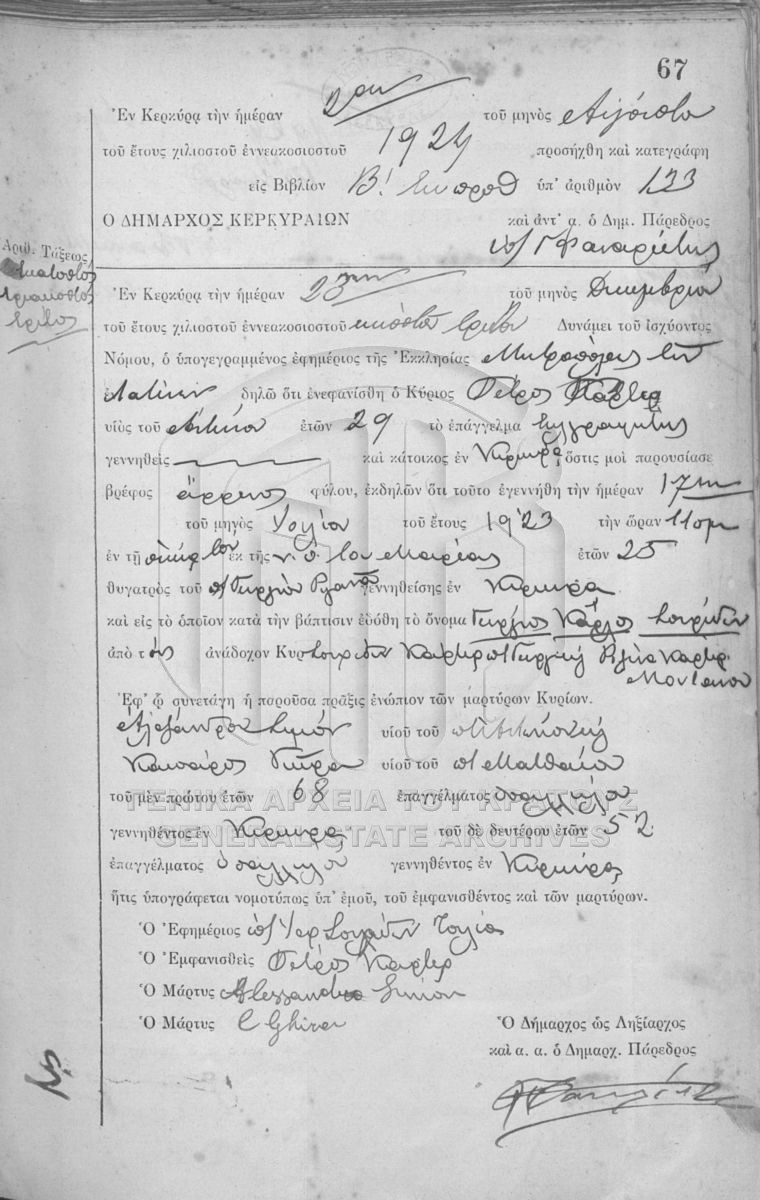 67
Ἐν Κερκύρᾳ τὴν ἡμέραν 2αν τοῦ μηνὸς Αὐγούστου
τοῦ ἔτους χιλιοστοῦ ἐννεακοσιοστοῦ 1924 προσήχθη καὶ κατεγράφη
εἰς Βιβλίον Β! ὑπ' ἀριθμὸν 123
Ο ΔΗΜΑΡΧΟΣ ΚΕΡΚΥΡΑΙΩΝ καὶ ἀντ' α. ὁ Δημ. Πάρεδρος
Ἀριθ. Τάξεως
Ἑκατοστὸς
τριακοστὸς
τρίτος
Ἐν Κερκύρᾳ τὴν ἡμέραν τοῦ μηνὸς Δεκεμβρίου
τοῦ ἔτους χιλιοστοῦ ἐννεακοσιοστοῦ εἰκοστοῦ τρίτου Δυνάμει τοῦ ἰσχύοντος
Νόμου, ὁ ὑπογεγραμμένος ἐφημέριος τῆς Ἐκκλησίας Μητροπόλεως τῶν
Λατίνων δηλῶ ὅτι ἐνεφανίσθη ὁ Κύριος Πέτρος Κάρτερ
υἱὸς τοῦ Ἀντωνίου ἐτῶν 29 τὸ ἐπάγγελμα
γεννηθεὶς καὶ κάτοικος ἐν Κέρκυρᾳ ὅστις μοὶ παρουσίασε
βρέφος ἄρρενος φύλου, ἐκδηλῶν ὅτι τοῦτο ἐγεννήθη τὴν ἡμέραν 17ην
τοῦ μηνὸς Ἰουλίου τοῦ ἔτους 1923 τὴν ὥραν 11πμ
ἐν τῇ οἰκίᾳ του ἐκ τῆς ν. σ. του Μαρίας ἐτῶν 25
θυγατρὸς τοῦ Γεωργίου γεννηθείσης ἐν Κερκύρᾳ
καὶ εἰς τὸ ὁποῖον κατὰ τὴν βάπτισιν ἐδόθη τὸ ὄνομα Γεώργιος Κάρλος Σπυρίδων
ἀπὸ τοὺς ἀνάδοχον Κυρ Σπυρίδων Κάρτερ
Ἐφ' ᾧ συνετάγη ἡ παροῦσα πρᾶξις ἐνώπιον τῶν μαρτύρων Κυρίων.
Ἀλέξανδρον Σιμόν υἱοῦ τοῦ
Καισάρος Γκίρα υἱοῦ τοῦ Ματθαίου
τοῦ μὲν πρώτου ἐτῶν 68 ἐπαγγέλματος ὑπαλλήλου
ΓΕΝΙΚΑ ΑΡΧΕΙΑ ΤΟΥ ΚΡΑΤΟΥΣ
GENERAL STATE ARCHIVES
γεννηθέντος ἐν Κέρκυρᾳ τοῦ δὲ δευτέρου ἐτῶν 52
ἐπαγγέλματος ὑπαλλήλου γεννηθέντος ἐν Κέρκυρᾳ
ἥτις ὑπογράφεται νομοτύπως ὑπ' ἐμοῦ, τοῦ ἐμφανισθέντος καὶ τῶν μαρτύρων.
Ὁ Ἐφημέριος
Ὁ Ἐμφανισθεὶς Πέτρος Κάρτερ
Ὁ Μάρτυς Alessandro Simon
Ὁ Μάρτυς C Ghira
Ὁ Δήμαρχος ὡς Ληξίαρχος
καὶ α. α. ὁ Δημαρχ. Πάρεδρος